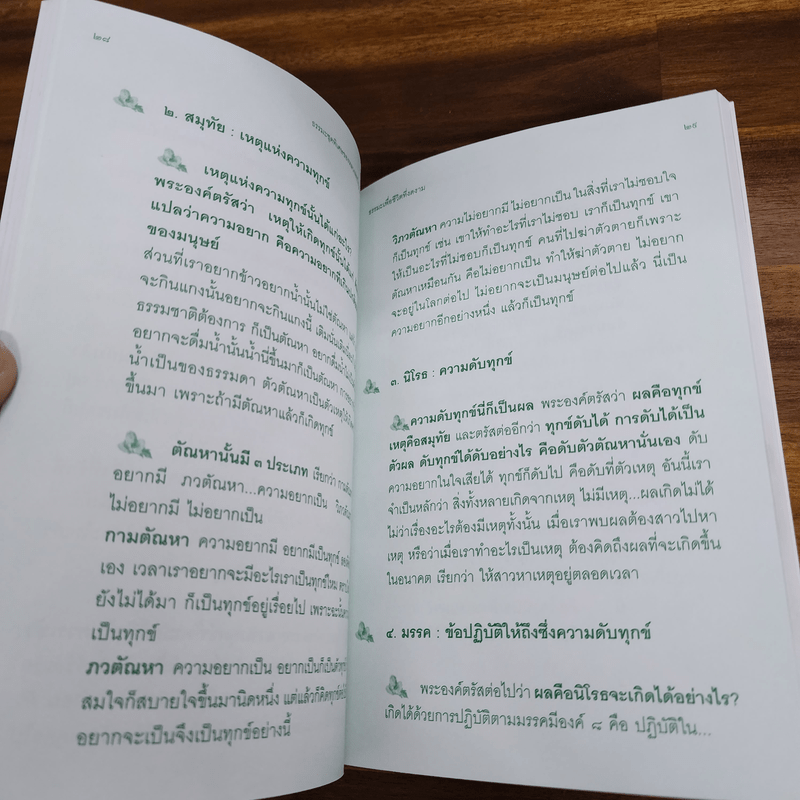 ๒๘
๒. สมุทัย : เหตุแห่งความทุกข์
เหตุแห่งความทุกข์นั้นได้แก่อะไร
พระองค์ตรัสว่า เหตุให้เกิดทุกข์นั้น
แปลว่าความอยาก คือความอยากที่
ของมนุษย์
ส่วนที่เราอยากข้าวอยากน้ำนั้นไม่ใช่ตัณหา
จะกินแกงนั้นอยากจะกินแกงนี้
ธรรมชาติต้องการ ก็เป็นตัณหา อยากดื่มน้ำ
อยากจะดื่มน้ำนั้นน้ำนี่ขึ้นมาก็เป็นตัณหา
น้ำเป็นของธรรมดา ตัวตัณหาเป็นตัวเหตุ
ขึ้นมา เพราะถ้ามีตัณหาแล้วก็เกิดทุกข์
ตัณหานั้นมี ๓ ประเภท เรียกว่า
อยากมี ภวตัณหา...ความอยากเป็น
ไม่อยากมี ไม่อยากเป็น
กามตัณหา ความอยากมี อยากมีเป็นทุกข์
เอง เวลาเราอยากจะมีอะไรเราเป็นทุกข์ไหม
ยังไม่ได้มา ก็เป็นทุกข์อยู่เรื่อยไป เพราะฉะนั้น
เป็นทุกข์
ภวตัณหา ความอยากเป็น อยากเป็นก็เป็นตัว
สมใจก็สบายใจขึ้นมานิดหนึ่ง แต่แล้วก็คิดทุกข์
อยากจะเป็นจึงเป็นทุกข์อย่างนี้
๒๙
ธรรมะเพื่อชีวิตที่งดงาม
วิภวตัณหา ความไม่อยากมี ไม่อยากเป็น ในสิ่งที่เราไม่ชอบใจ
ก็เป็นทุกข์ เช่น เขาให้ทำอะไรที่เราไม่ชอบ เราก็เป็นทุกข์ เขา
ให้เป็นอะไรที่ไม่ชอบก็เป็นทุกข์ คนที่ไปฆ่าตัวตายก็เพราะ
ตัณหาเหมือนกัน คือไม่อยากเป็น ทำให้ฆ่าตัวตาย ไม่อยาก
จะอยู่ในโลกต่อไป ไม่อยากจะเป็นมนุษย์ต่อไปแล้ว นี่เป็น
ความอยากอีกอย่างหนึ่ง แล้วก็เป็นทุกข์
๓. นิโรธ : ความดับทุกข์
ความดับทุกข์นี่ก็เป็นผล พระองค์ตรัสว่า ผลคือทุกข์
เหตุคือสมุทัย และตรัสต่ออีกว่า ทุกข์ดับได้ การดับได้เป็น
ตัวผล ดับทุกข์ได้ดับอย่างไร คือดับตัวตัณหานั่นเอง ดับ
ความอยากในใจเสียได้ ทุกข์ก็ดับไป คือดับที่ตัวเหตุ อันนี้เรา
จำเป็นหลักว่า สิ่งทั้งหลายเกิดจากเหตุ ไม่มีเหตุ...ผลเกิดไม่ได้
ไม่ว่าเรื่องอะไรต้องมีเหตุทั้งนั้น เมื่อเราพบผลต้องสาวไปหา
เหตุ หรือว่าเมื่อเราทำอะไรเป็นเหตุ ต้องคิดถึงผลที่จะเกิดขึ้น
ในอนาคต เรียกว่า ให้สาวหาเหตุอยู่ตลอดเวลา
๔. มรรค : ข้อปฏิบัติให้ถึงซึ่งความดับทุกข์
พระองค์ตรัสต่อไปว่า ผลคือนิโรธจะเกิดได้อย่างไร?
เกิดได้ด้วยการปฏิบัติตามมรรคมีองค์ ๘ คือ ปฏิบัติใน...